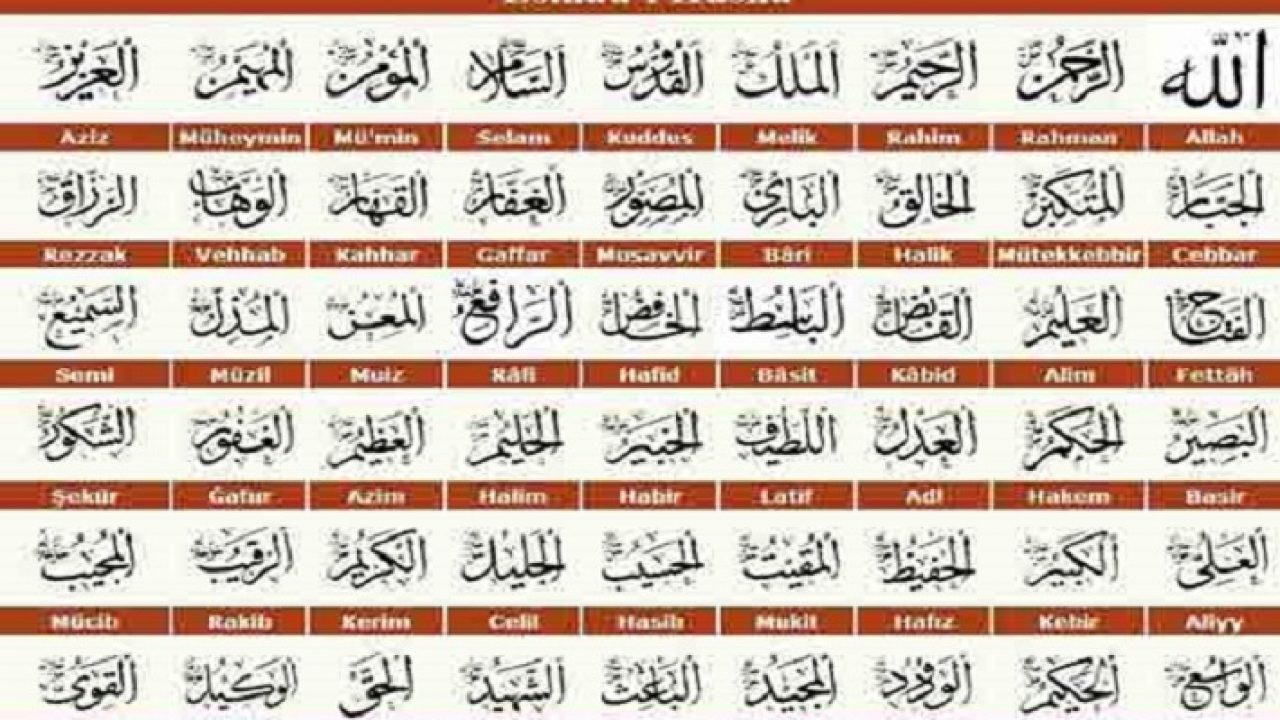 الله الرحمن الرحيم الملك القدوس السلام المؤمن المهيمن العزيز
Aziz Müheymin Mü'min Selam Kuddus Melik Rahim Rahman Allah
الجبار المتكبر الخالق البارئ المصور الغفار القهار الوهاب الرزاق
Rezzak Vehhab Kahhar Gaffar Musavvir Bâri Halik Mütekkebbir Cebbar
الفتاح العليم القابض الباسط الخافض الرافع المعز المذل السميع
Semi Müzil Muiz Râfi Hafid Bâsit Kâbid Alim Fettâh
البصير الحكم العدل اللطيف الخبير الحليم العظيم الغفور الشكور
Şekür Ğafur Azim Halim Habir Latif Adl Hakem Basir
العلي الكبير الحفيظ المقيت الحسيب الجليل الكريم الرقيب المجيب
Mücib Rakib Kerim Celil Hasib Mukit Hafız Kebir Aliyy
الواسع الحكيم الودود المجيد الباعث الشهيد الحق الوكيل القوي